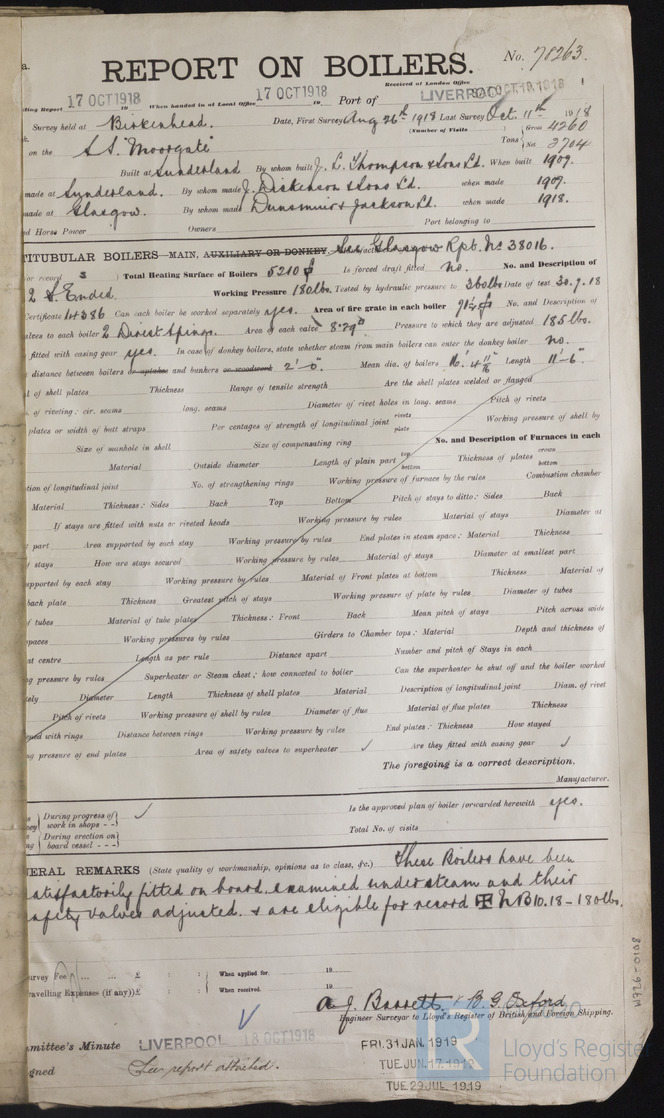 a.
REPORT ON BOILERS.
No. 78263.
Received at London Office
17 OCT 1918 When handed in at Local Office 17 OCT 1918 19 Port of LIVERPOOL OCT. 19. 1918
Survey held at Birkenhead. Date, First Survey Aug 26th 1918 Last Survey Oct. 11th 1918
(Number of Visits
on the S.S. Moorgate Tons { Gross 4260
Net 3704
Built at Sunderland By whom built J. L. Thompson & Sons Ld. When built 1907.
made at Sunderland. By whom made J. Dickenson & Sons Ld. when made 1907.
made at Glasgow. By whom made Dunsmuir & Jackson Ld. when made 1918.
Horse Power Owners Port belonging to
TITUBULAR BOILERS—MAIN, AUXILIARY OR DONKEY. See Glasgow Rpt. No 38016.
for record S Total Heating Surface of Boilers 5210 Is forced draft fitted no. No. and Description of
2 S. Ended Working Pressure 180 lbs. Tested by hydraulic pressure to 360 lbs Date of test 30.9.18
Certificate 14386 Can each boiler be worked separately yes. Area of fire grate in each boiler No. and Description of
valves to each boiler 2 Direct Spring. Area of each valve 8.29" Pressure to which they are adjusted 185 lbs.
fitted with easing gear yes. In case of donkey boilers, state whether steam from main boilers can enter the donkey boiler no.
distance between boilers or uptakes and bunkers or woodwork 2'-0" Mean dia. of boilers 16'.4 11/16" Length 11'-6"
of shell plates Thickness Range of tensile strength Are the shell plates welded or flanged
of riveting: cir. seams long. seams Diameter of rivet holes in long. seams Pitch of rivets
plates or width of butt straps Per centages of strength of longitudinal joint rivets plate Working pressure of shell by
Size of manhole in shell Size of compensating ring No. and Description of Furnaces in each
Material Outside diameter Length of plain part top bottom Thickness of plates crown bottom
tion of longitudinal joint No. of strengthening rings Working pressure of furnace by the rules Combustion chamber
Material Thickness: Sides Back Top Bottom Pitch of stays to ditto: Sides Back
If stays are fitted with nuts or riveted heads Working pressure by rules Material of stays Diameter at
part Area supported by each stay Working pressure by rules End plates in steam space: Material Thickness
of stays How are stays secured Working pressure by rules Material of stays Diameter at smallest part
upported by each stay Working pressure by rules Material of Front plates at bottom Thickness Material of
back plate Thickness Greatest pitch of stays Working pressure of plate by rules Diameter of tubes
of tubes Material of tube plates Thickness: Front Back Mean pitch of stays Pitch across wide
spaces Working pressures by rules Girders to Chamber tops: Material Depth and thickness of
at centre Length as per rule Distance apart Number and pitch of Stays in each
ng pressure by rules Superheater or Steam chest; how connected to boiler Can the superheater be shut off and the boiler worked
tely Diameter Length Thickness of shell plates Material Description of longitudinal joint Diam. of rivet
Pitch of rivets Working pressure of shell by rules Diameter of flue Material of flue plates Thickness
ened with rings Distance between rings Working pressure by rules End plates: Thickness How stayed
ng pressure of end plates Area of safety valves to superheater ✓ Are they fitted with easing gear ✓
The foregoing is a correct description,
Manufacturer.
During progress of work in shops - - ✓ Is the approved plan of boiler forwarded herewith yes.
During erection on board vessel - - - Total No. of visits
NERAL REMARKS (State quality of workmanship, opinions as to class, &c.) These Boilers have been
satisfactorily fitted on board, examined under steam and their
safety valves adjusted. & are eligible for record ✠ NB 10.18 - 180 lbs.
urvey Fee ... ... £ : : When applied for. 19
ravelling Expenses (if any) £ : : When received. 19
A. J. Barrett & B. G. Oxford
Engineer Surveyor to Lloyd's Register of British and Foreign Shipping.
mmittee's Minute LIVERPOOL 18 OCT 1918 FRI. 31 JAN. 1919
gned See report attached. TUE. JUN. 17. 1919
TUE. 29 JUL. 1919
W726-0108
Lloyd's Register
Foundation